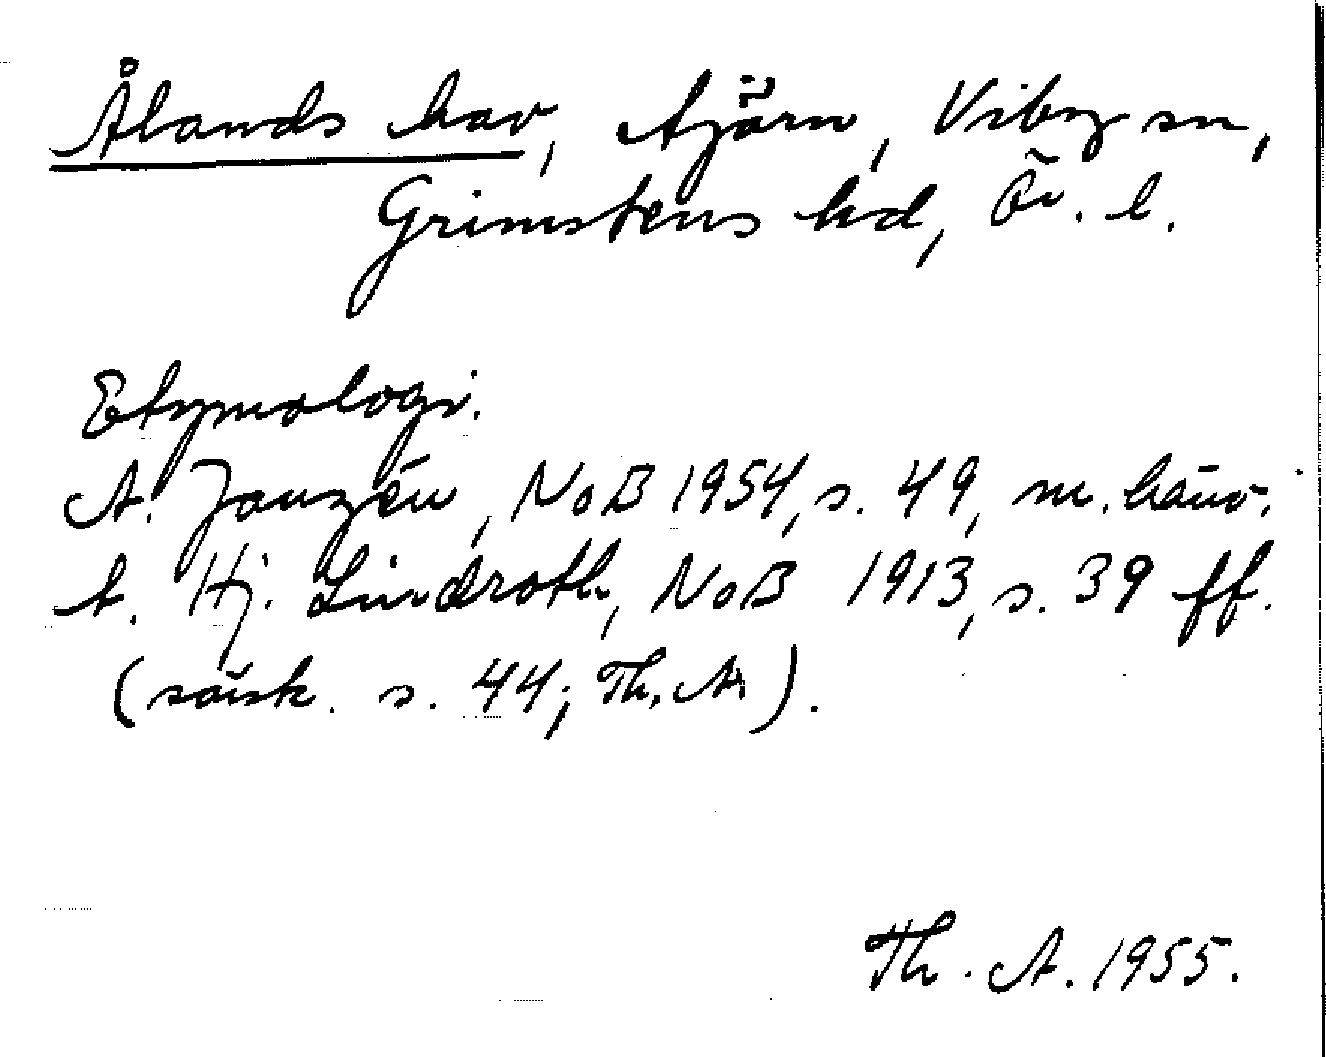 Ålands hav, tjärn, Viby sn,
Grimstens hd, Ör. l.
Etymologi.
A. Janzén, NoB 1954, s. 49, m. hänv.
t. Hj. Lindroth, NoB 1913, s. 39 ff.
(särsk. s. 44; Th. A.).
Th. A. 1955.